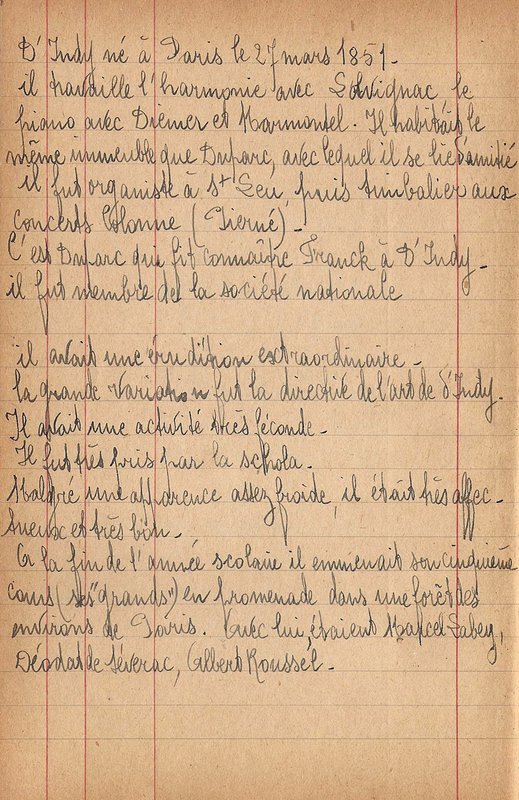 D'Indy né à Paris le 27 mars 1851-
il travaille l'harmonie avec Lolvignac le
piano avec Diemer et Marmontel. Il habitait le
même immeuble que Duparc, avec lequel il se lie d'amitié
il fut organiste à St Leu, puis timbalier aux
concerts Colonne (Pierné)-
C'est Duparc qui fit connaître Franck à D'Indy-
il fut membre de la société nationale
il avait une érudition extraordinaire-
la grande Variation fut la directive de l'art de d'Indy.
Il avait une activité très féconde-
Il fut très pris par la schola.
Malgré une apparence assez froide, il était très affec-
tueux et très bon-
A la fin de l'année scolaire il emmenait son cinquième
cours (ses "grands") en promenade dans une forêt des
environs de Paris. Avec lui, étaient Marcel Labey,
Déodat de Séverac, Albert Roussel-